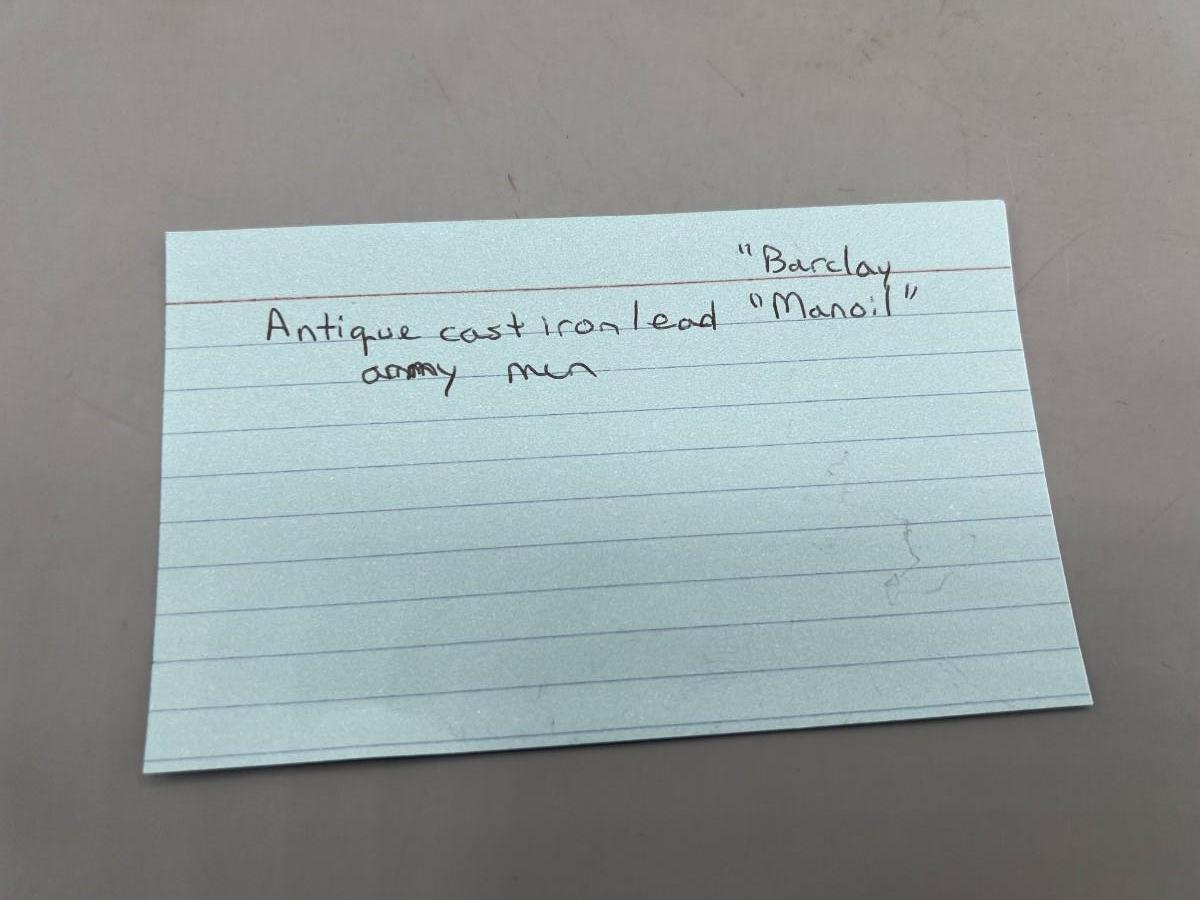 "Barclay
Antique cast iron lead "Manoil"
army men